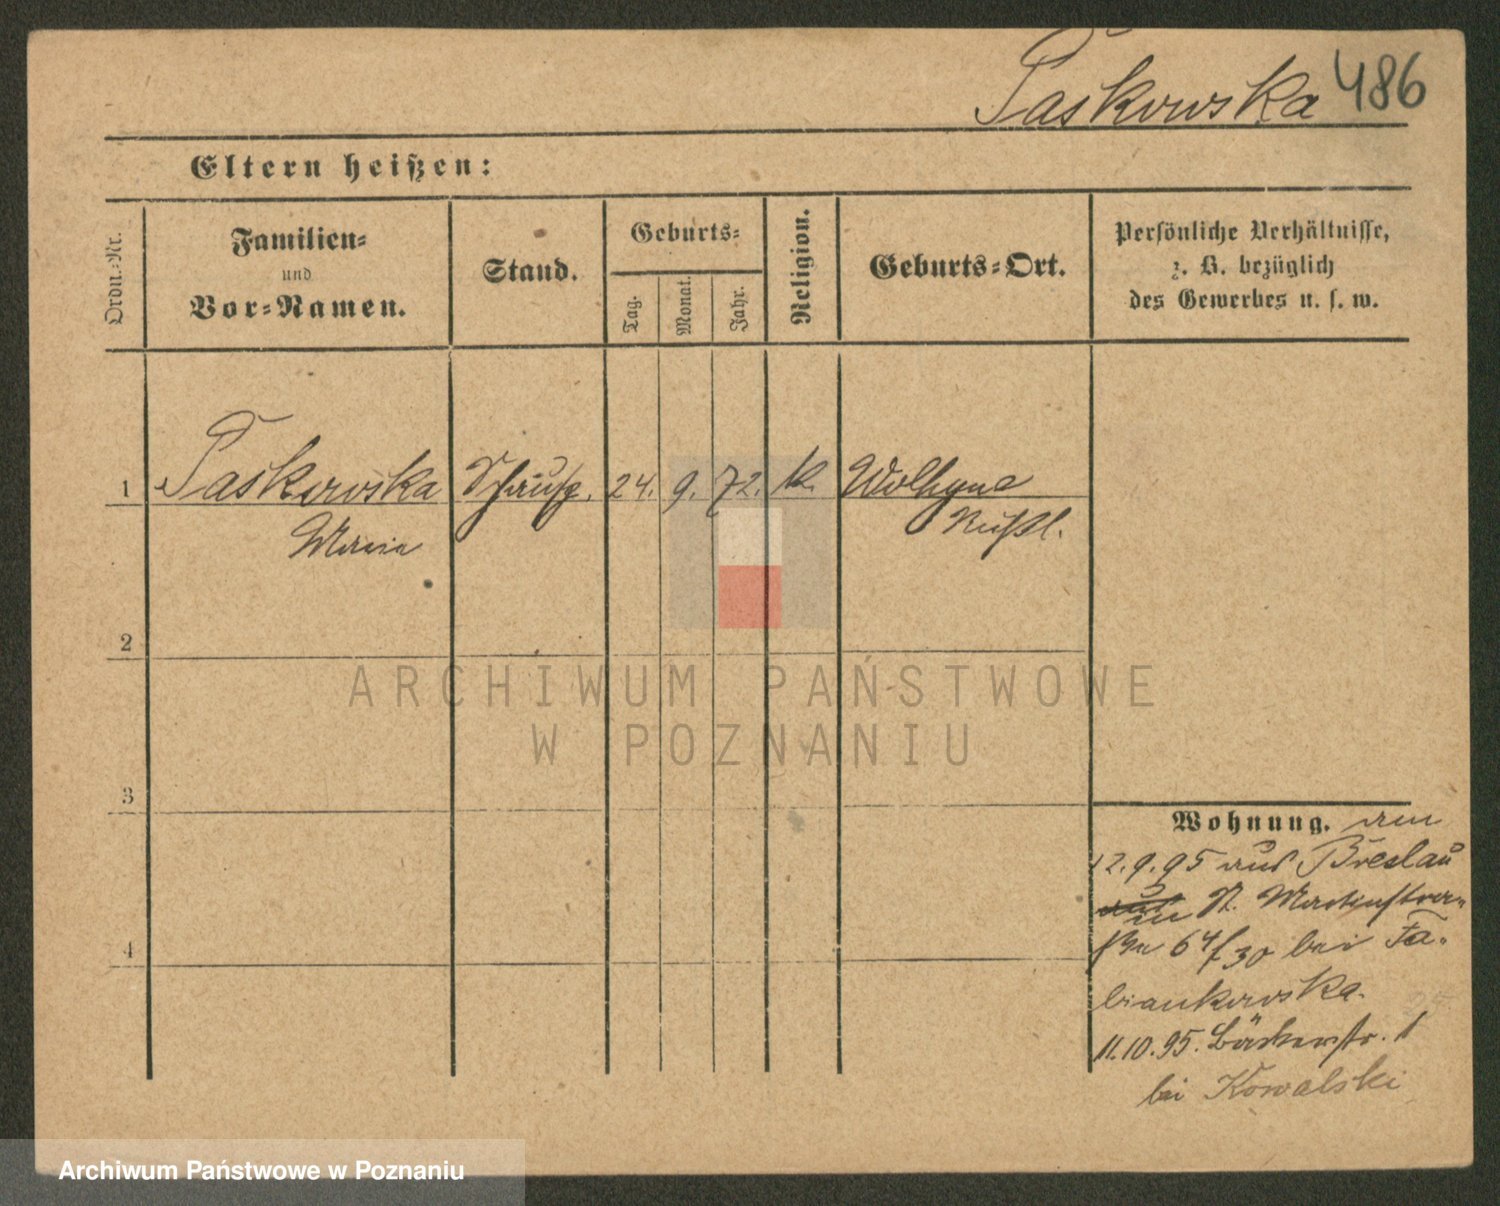 Paskowska 486
Eltern heißen:
Ordn.-Nr.
Familien-
und
Vor-Namen.
Stand.
Geburts-
Tag.
Monat.
Jahr.
Religion.
Geburts-Ort.
Persönliche Verhältnisse,
z. B. bezüglich
des Gewerbes u. s. w.
1 Paskowska 24. 9. 72. k. Wolhyne
Maria Rußl.
2
3
4
Wohnung. am
12.9.95 aus Breslau
in St. Martinstra-
ße 64/30 bei Fa-
biankowska.
11.10.95. Bäckerstr. 1
bei Kowalski
ARCHIWUM PAŃSTWOWE
W POZNANIU
Archiwum Państwowe w Poznaniu